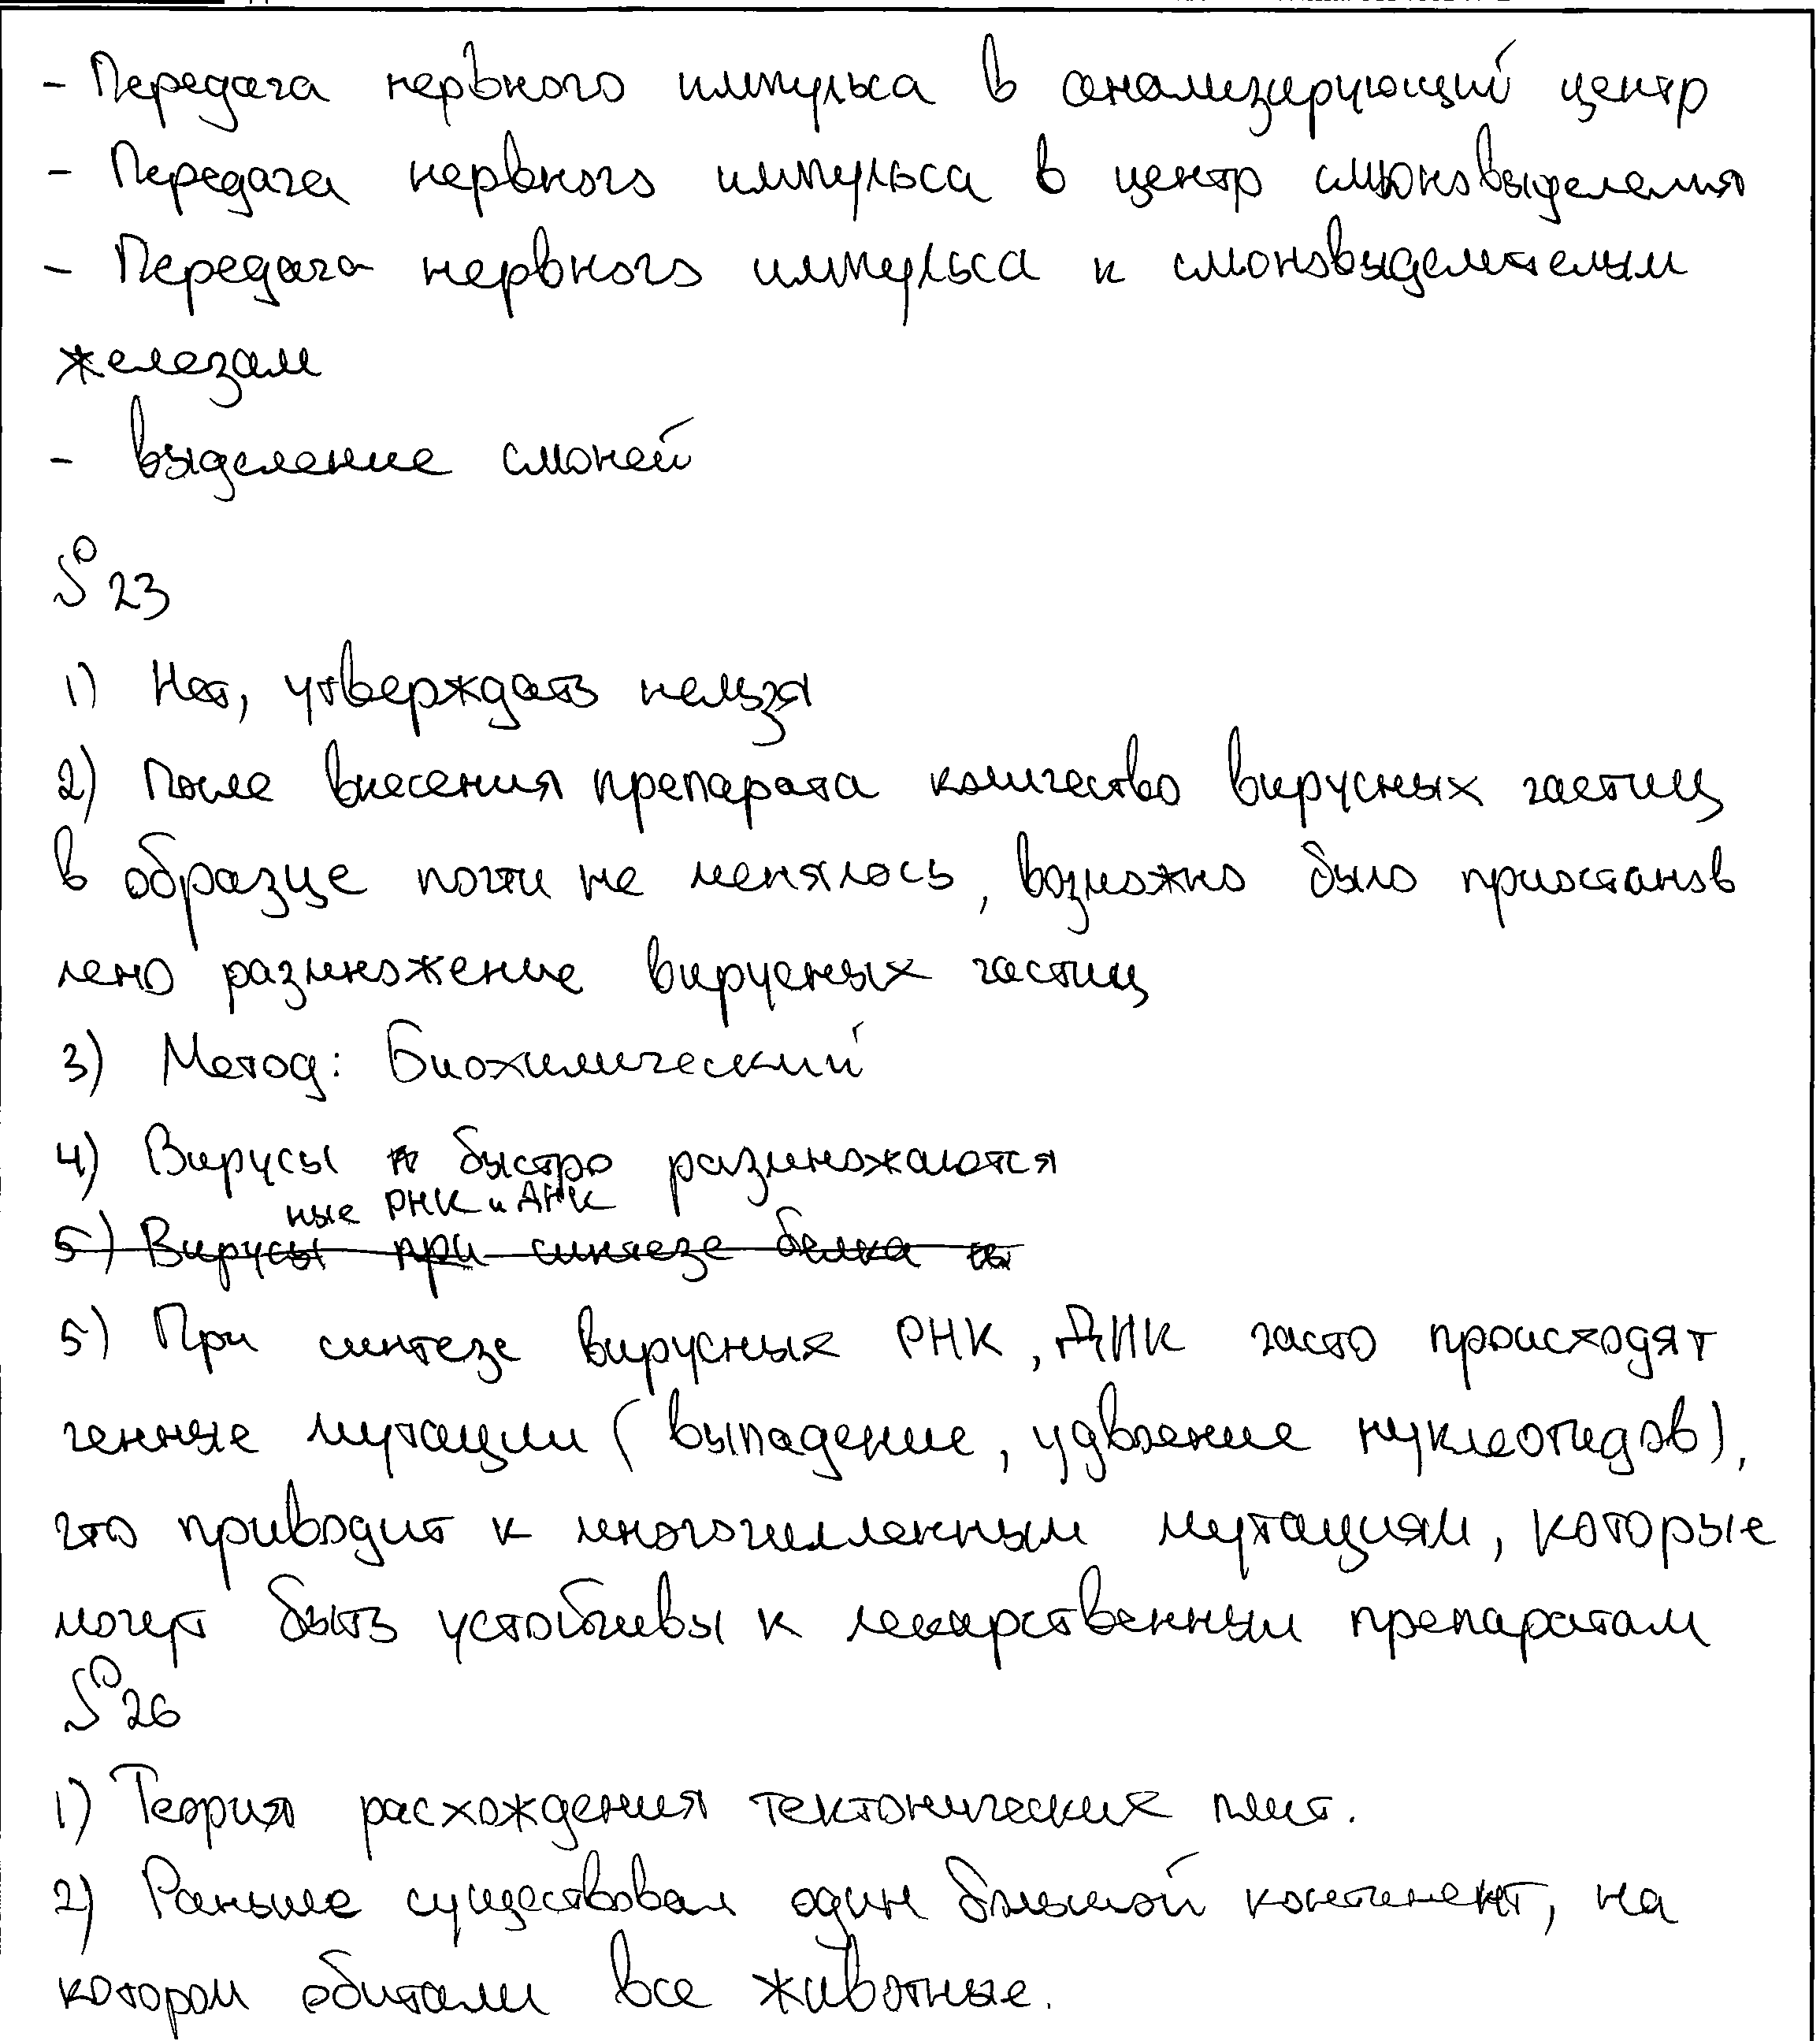 - Передача нервного импульса в анализирующий центр
- Передача нервного импульса в центр слюновыделения
- Передача нервного импульса к слюновыделителым
железам
- выделение слюней
№ 23
1) Нет, утверждать нельзя
2) После внесения препарата количество вирусных частиц
в образце почти не менялось, возможно было приостанов
лено размножение вирусных частиц
3) Метод: Биохимический
4) Вирусы быстро размножаются
ные РНК и ДНК
5) Вирусы при синтезе белка
5) При синтезе вирусных РНК, ДНК часто происходят
генные мутации (выпадение, удвоение нуклеотидов),
что приводит к многочилленным мутациям, которые
могут быть устойчивы к лекарственным препаратам
№ 26
1) Теория расхождения тектонических плит.
2) Раньше существовал один большой континент, на
котором обитали все животные.